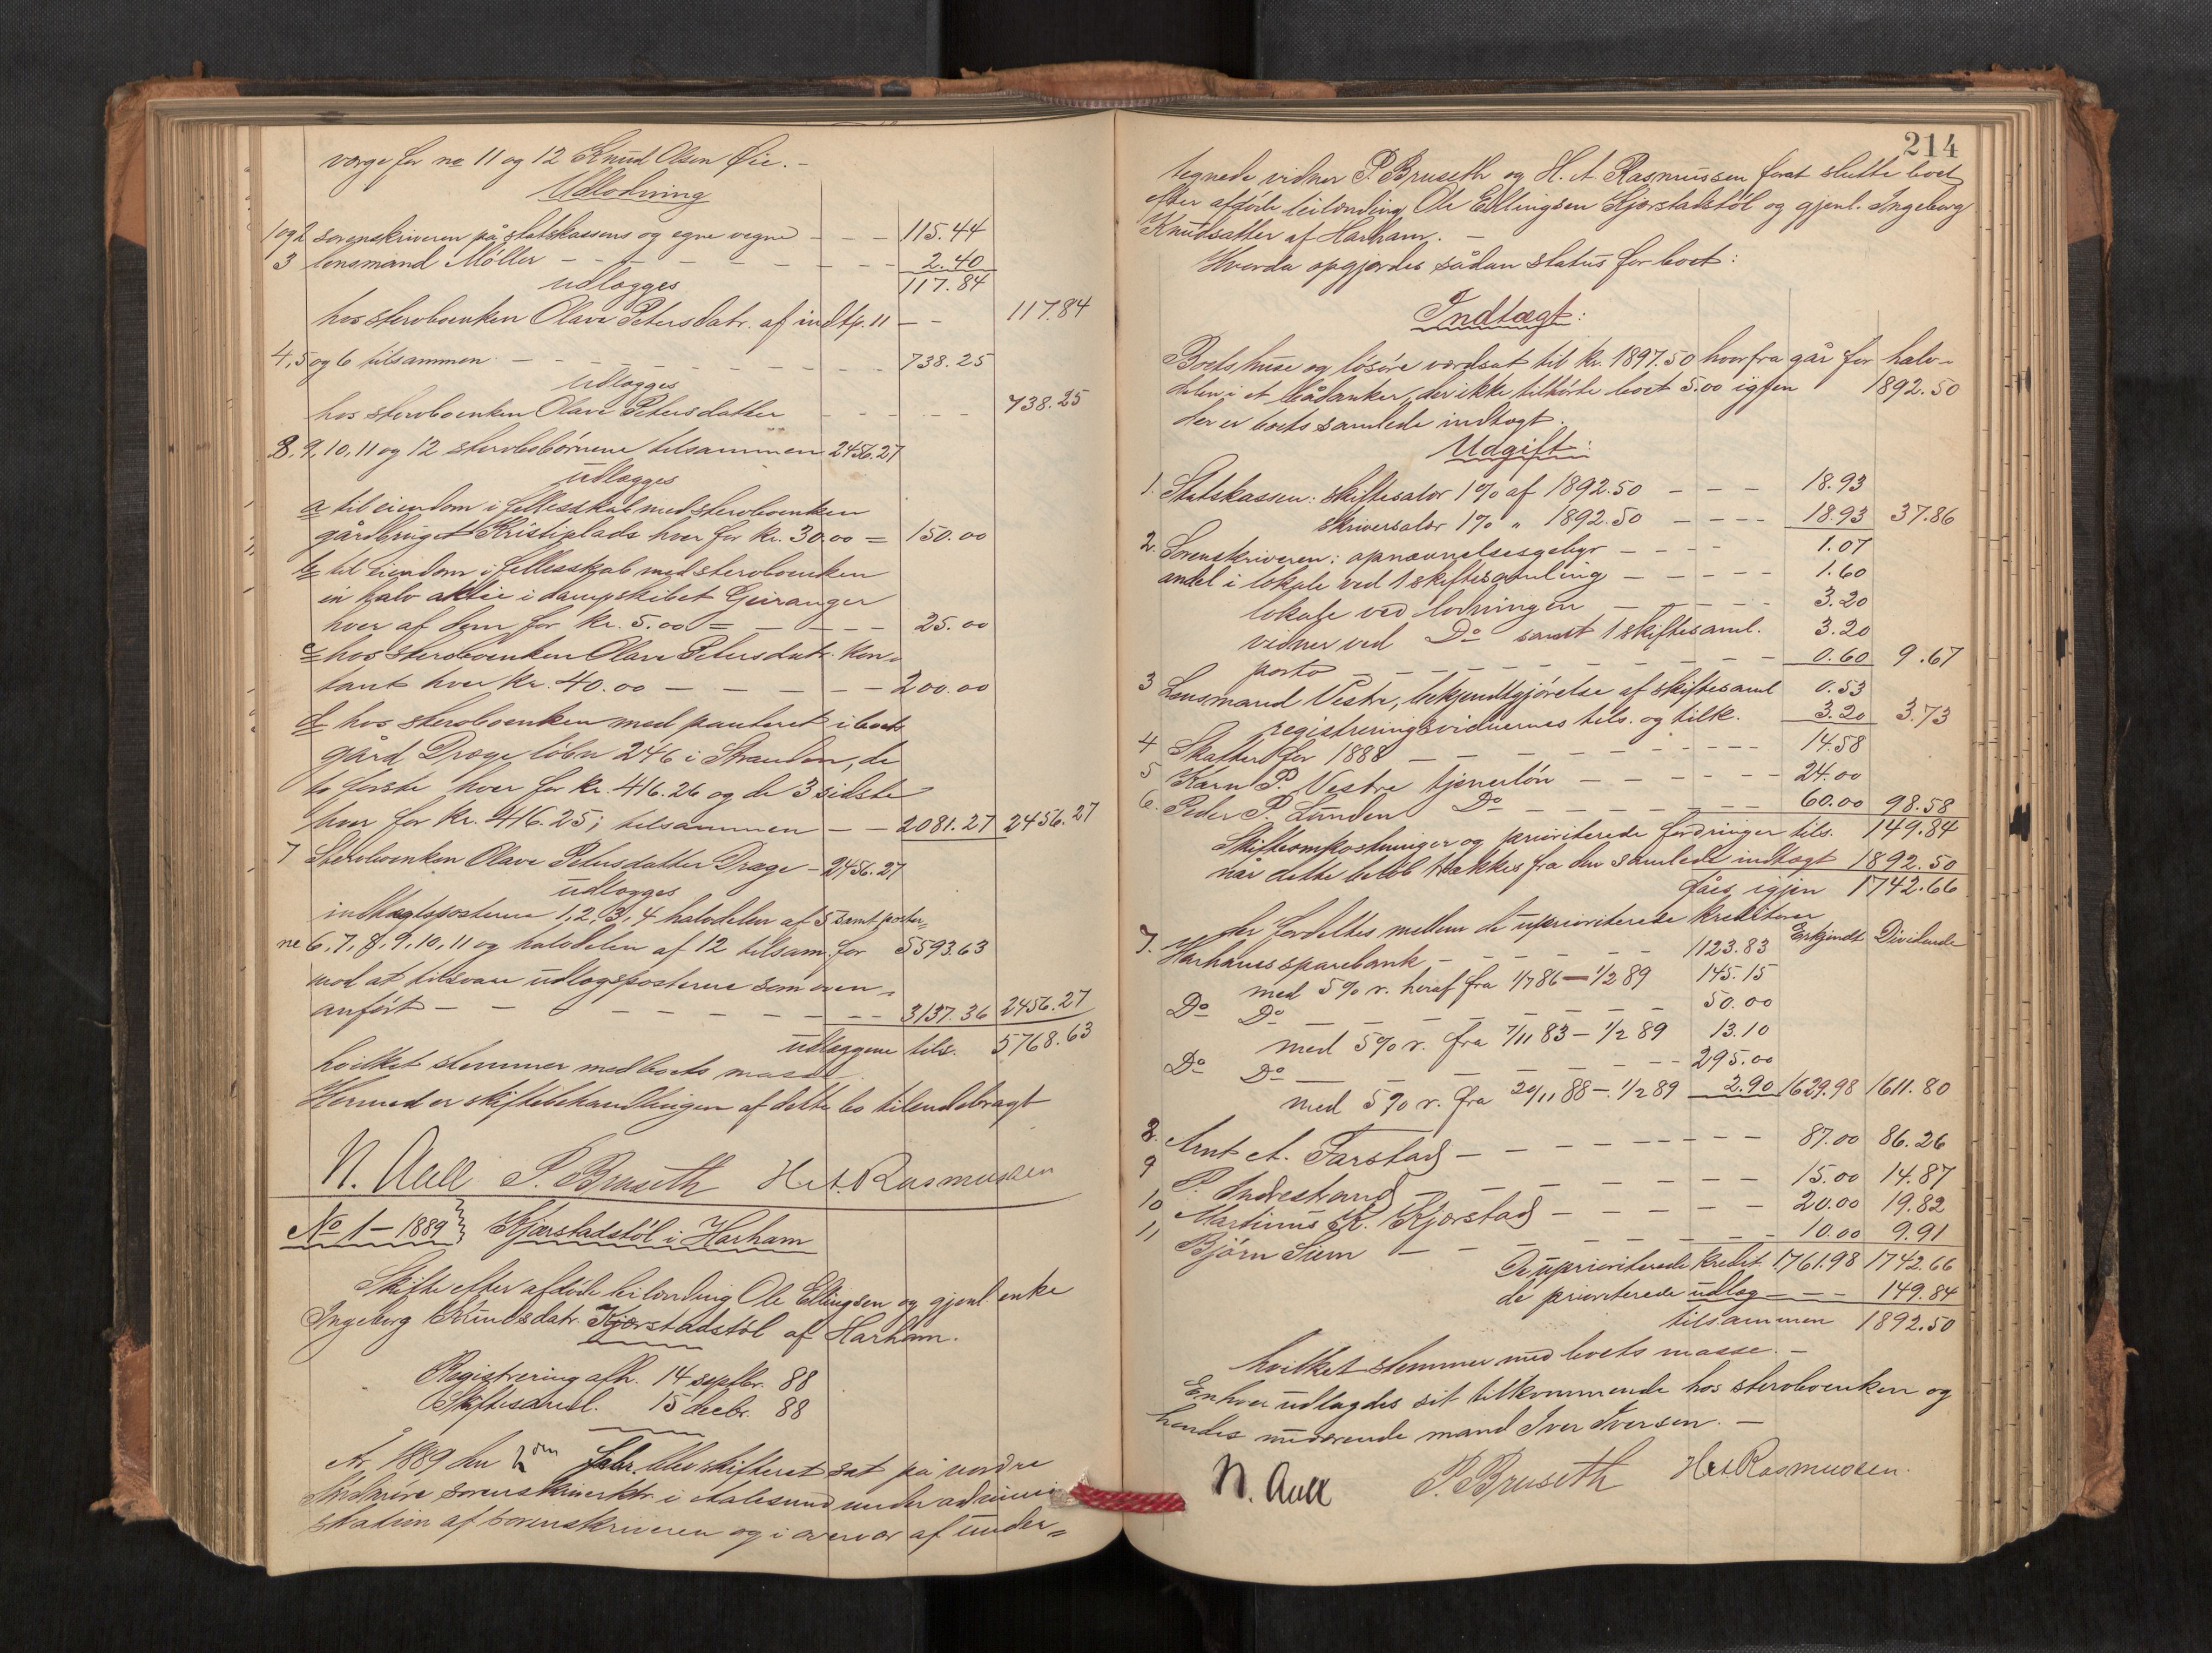 værge for no 11 og 12 Knud Olsen Øie. -
Udlodning
1 og 2 sorenskriveren på statskassens og egne vegne - - - 115.44
3 lensmand Møller - - - - - - - - - - 2.40
udlægges 117.84
hos sterboenken Olave Petersdatr. af indtp. 11 - - 117.84
4, 5 og 6 tilsammen - - - - - - - - - - 738.25
udlægges
hos sterboenken Olave Petersdatter - - - - - - 738.25
8, 9, 10, 11 og 12 sterbobørnene tilsammen 2456.27
udlægges
a til eiendom i fellesskab med sterboenken
gårdbruget Kristiplads hver for kr. 30.00 = 150.00
b til eiendom i fellesskab med sterboenken
en halv aktie i dampskibet Geiranger
hver af dem for kr. 5.00 = - - - - 25.00
c hos sterboenken Olave Petersdatr. kon-
tant hver kr. 40.00 - - - - - - 200.00
d hos sterboenken med panteret i boets
gård Drage løbn 246 i Stranden, de
to første hver for kr. 416.26 og de 3 sidste
hver for kr. 416.25; tilsammen - - 2081.27 2456.27
7 Sterboenken Olave Petersdatter Drage - 2456.27
udlægges
indtægtsposterne 1, 2, 3, 4 halvdelen af 5 samt poster-
ne 6, 7, 8, 9, 10, 11 og halvdelen af 12 tilsam. for 5593.63
mod at tilsvare udlægsposterne som oven-
anført - - - - - - - - 3137.36 2456.27
udlæggene tils. 5768.63
hvilket stemmer med boets masse
Hermed er skiftebehandlingen af dette bo tilendebragt
N. Aall P. Bruseth H. A. Rasmussen
No 1 - 1889 } Kjærstadstøl i Harham
Skifte efter afdøde leilending Ole Ellingsen og gjenl. enke
Ingeborg Knudsdatr. Kjærstadstøl af Harham.
Registrering afh. 14 septbr. 88
Skiftesaml. 15 decbr. 88
År 1889 den 2den febr. blev skifteret sat på nordre
Søndmøre sorenskriverktr. i Aalesund under admini-
stration af sorenskriveren og i overvær af under=
214
tegnede vidner P. Bruseth og H. A. Rasmussen forat slutte boet
efter afdøde leilending Ole Ellingsen Kjærstadstøl og gjenl. Ingeborg
Knudsatter af Harham. -
Hvorda opgjordes sådan status for boet:
Indtægt:
Boets huse og løsøre værdsat til kr. 1897.50 hvorfra går for halv-
delen i et bådanker, der ikke tilhørte boet 5.00 igjen 1892.50
der er boets samlede indtægt.
Udgift:
1. Statskassen: skiftesalær 1% af 1892.50 - - - 18.93
skriversalær 1% " 1892.50 - - - - 18.93 37.86
2. Sorenskriveren: opnævnelsesgebyr - - - - 1.07
andel i lokale ved 1 skiftesamling - - - - - 1.60
lokale ved lodningen - - - - - 3.20
vidner ved Do samt 1 skiftesaml. 3.20
porto - - - - - - - - - 0.60 9.67
3 Lensmand Vestre, bekjendtgjørelse af skiftesaml 0.53
registreringsvidnernes tils. og tilk. 3.20 3.73
4 Skatter for 1888 - - - - - - - - - - 14.58
5 Karn P. Vestre tjenerløn - - - - - - 24.00
6. Peder P. Lunden Do - - - - - - - 60.00 98.58
Skifteomkostninger og prioriterede fordringer tils. 149.84
når dette beløb trækkes fra den samlede indtægt 1892.50
fåes igjen 1742.66
der fordeltes mellem de uprioriterede kreditorer
Erkjendt Dividende
7. Harhams sparebank - - - - - - 1123.83
med 5% r. heraf fra 1/7 86 - 1/2 89 145.15
Do Do - - - - - - - 50.00
med 5% r. fra 7/11 83 - 1/2 89 13.10
Do Do - - - - - - - 295.00
med 5% r. fra 20/11 88 - 1/2 89 2.90 1629.98 1611.80
8. Arnt A. Farstad - - - - - - - - - 87.00 86.26
9 P. Indrestrand - - - - - - - - 15.00 14.87
10 Martinus K. Kjærstad - - - - - 20.00 19.82
11 Bjørn Siem - - - - - - - 10.00 9.91
De uprioriterede kredit. 1761.98 1742.66
de prioriterede udlæg - - - 149.84
tilsammen 1892.50
hvilket stemmer med boets masse. -
Enhver udlagdes sit tilkommende hos sterboenken og
hendes nuværende mand Iver Iversen. -
N. Aall P. Bruseth H A Rasmussen.